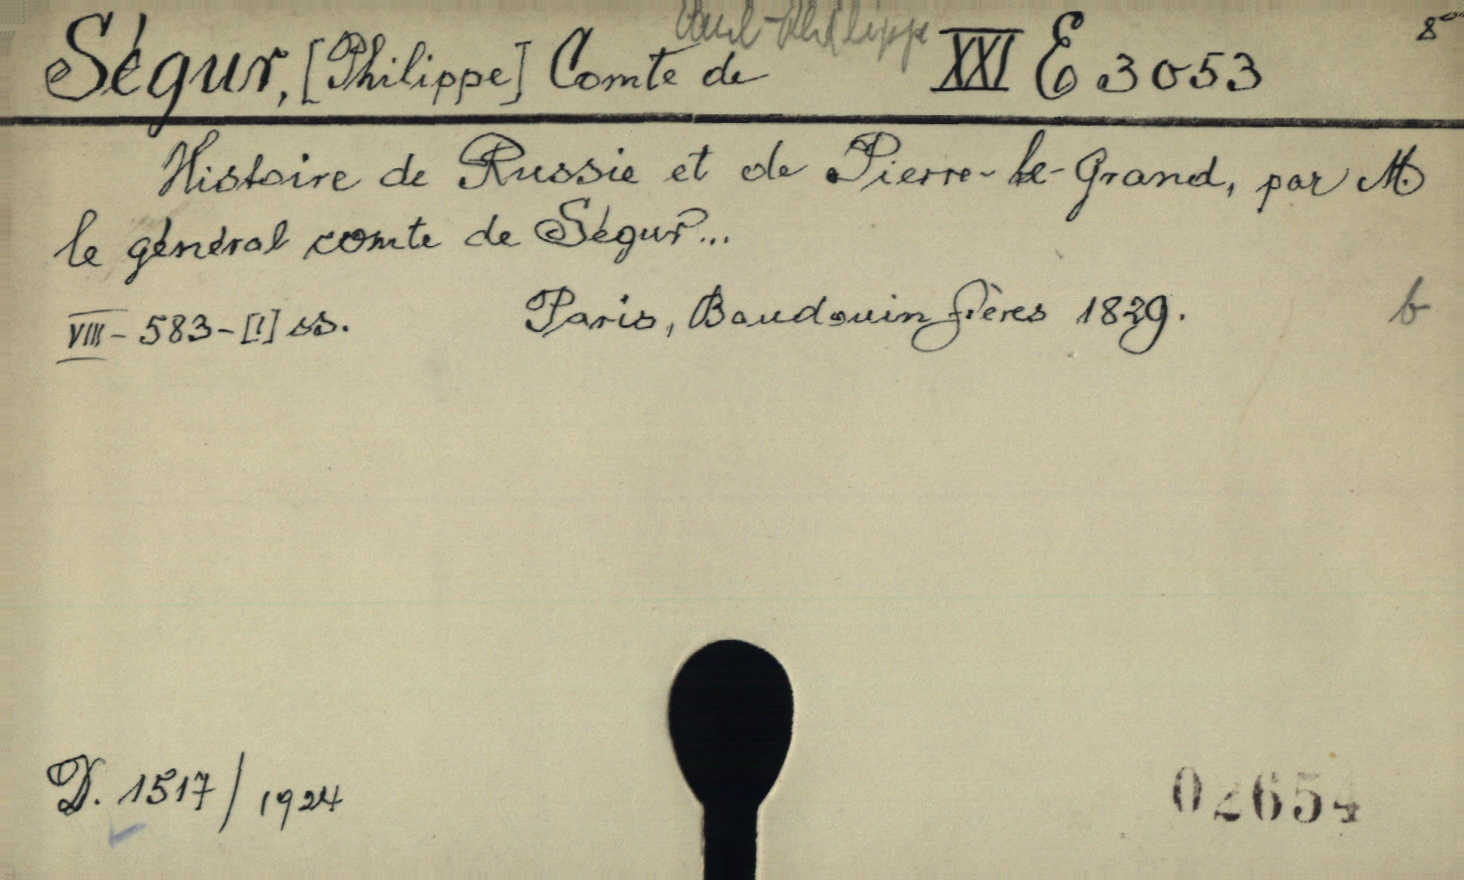 Paul-Philippe
Ségur, [Philippe] Comte de XXI E 3053 8°
Histoire de Russie et de Pierre-le-Grand, par M.
le général comte de Ségur...
VIII - 583 - [1] ss. Paris, Baudouin frères 1829. b
D. 1517/1924 02654